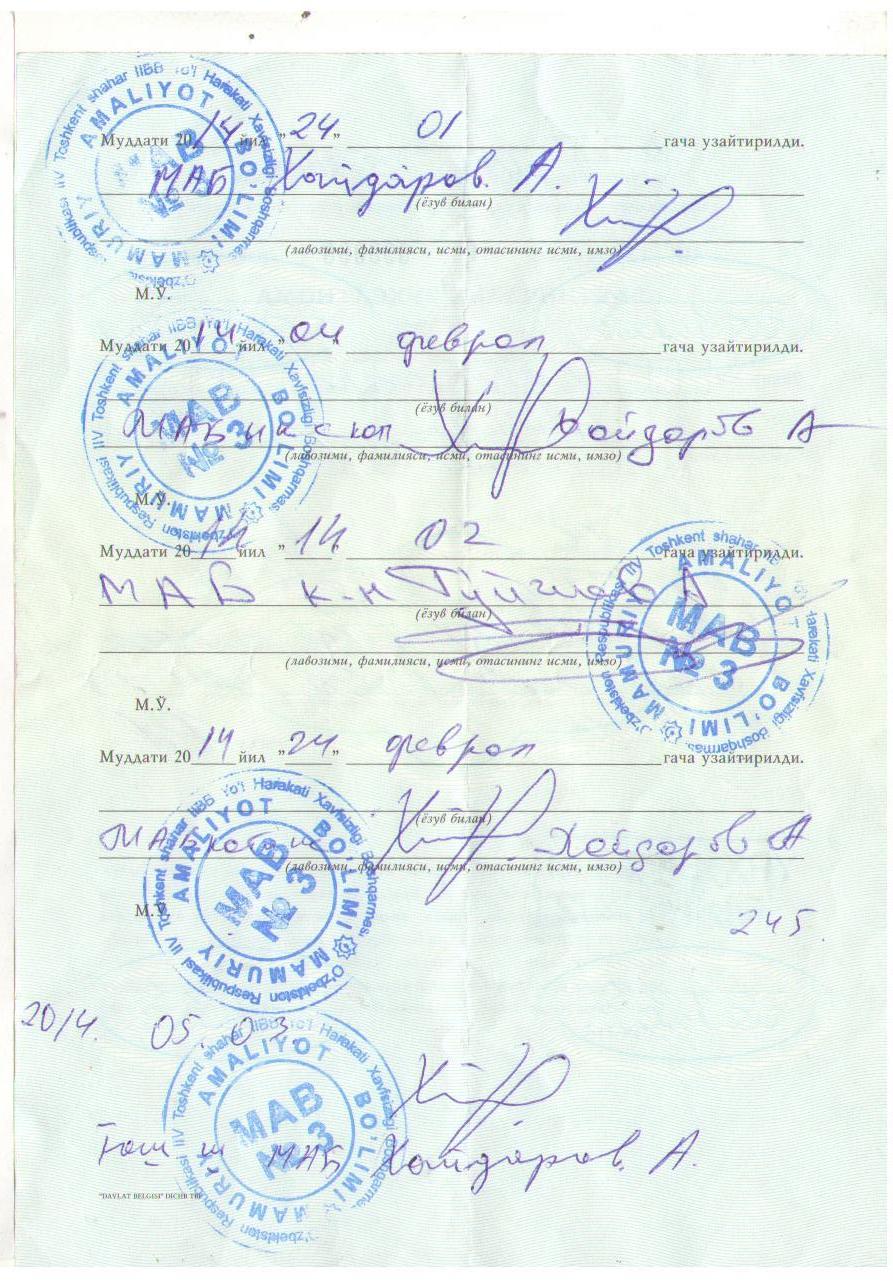 Муддати 2014 йил "24" 01 гача узайтирилди.
МАБ Хайдаров. А.
(ёзув билан)
(лавозими, фамилияси, исми, отасининг исми, имзо)
М.Ў.
Муддати 2014 йил "04" феврал гача узайтирилди.
(ёзув билан)
Хайдаров А
(лавозими, фамилияси, исми, отасининг исми, имзо)
М.Ў.
Муддати 2014 йил "14" 02 гача узайтирилди.
МАБ к-н
(ёзув билан)
(лавозими, фамилияси, исми, отасининг исми, имзо)
М.Ў.
Муддати 2014 йил "24" феврал гача узайтирилди.
(ёзув билан)
МАБ Хайдаров А
(лавозими, фамилияси, исми, отасининг исми, имзо)
М.Ў.
245.
2014. 05.03.
Тош ш МАБ Хайдаров. А.
"DAVLAT BELGISI" DICHB
O'zbekiston Respublikasi IIV Toshkent shahar IIBB Yo'l Harakati Xavfsizligi Boshqarmasi
MAMURIY AMALIYOT BO'LIMI
MAB
№ 3